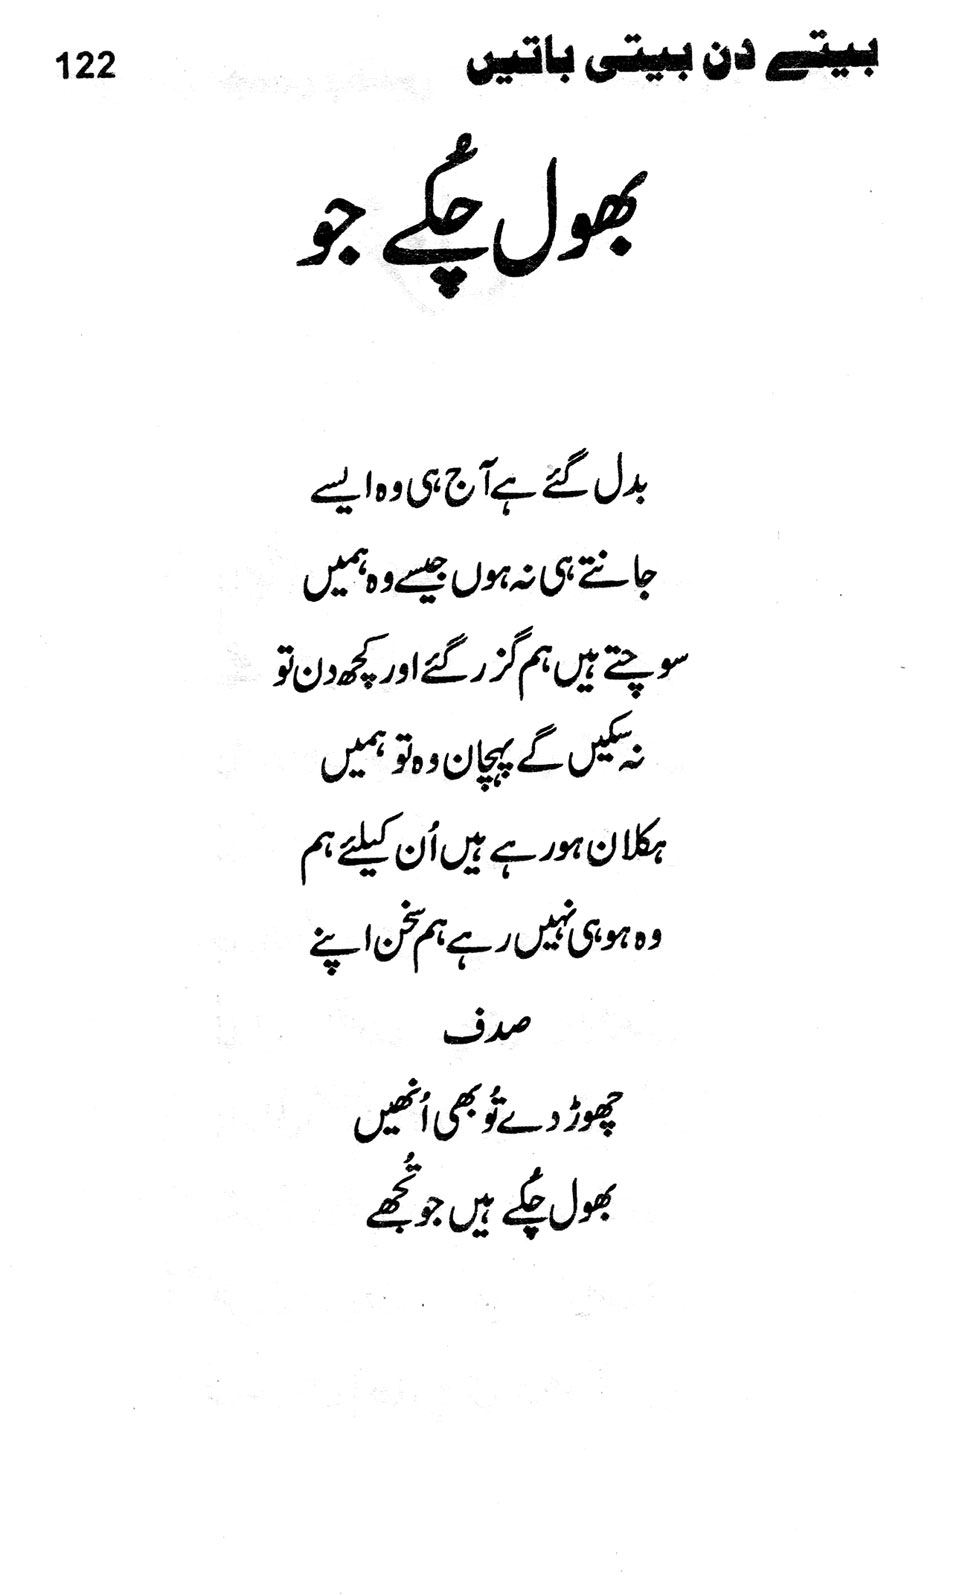 بیتے دن بیتی باتیں 122
بھول چُکے جو
بدل گئے ہے آج ہی وہ ایسے
جانتے ہی نہ ہوں جیسے وہ ہمیں
سوچتے ہیں ہم گزر گئے اور کچھ دن تو
نہ سکیں گے پہچان وہ تو ہمیں
ہکلان ہو رہے ہیں اُن کیلئے ہم
وہ ہو ہی نہیں رہے ہم سخن اپنے
صدف
چھوڑ دے تُو بھی اُنھیں
بھول چُکے ہیں جو تُجھے